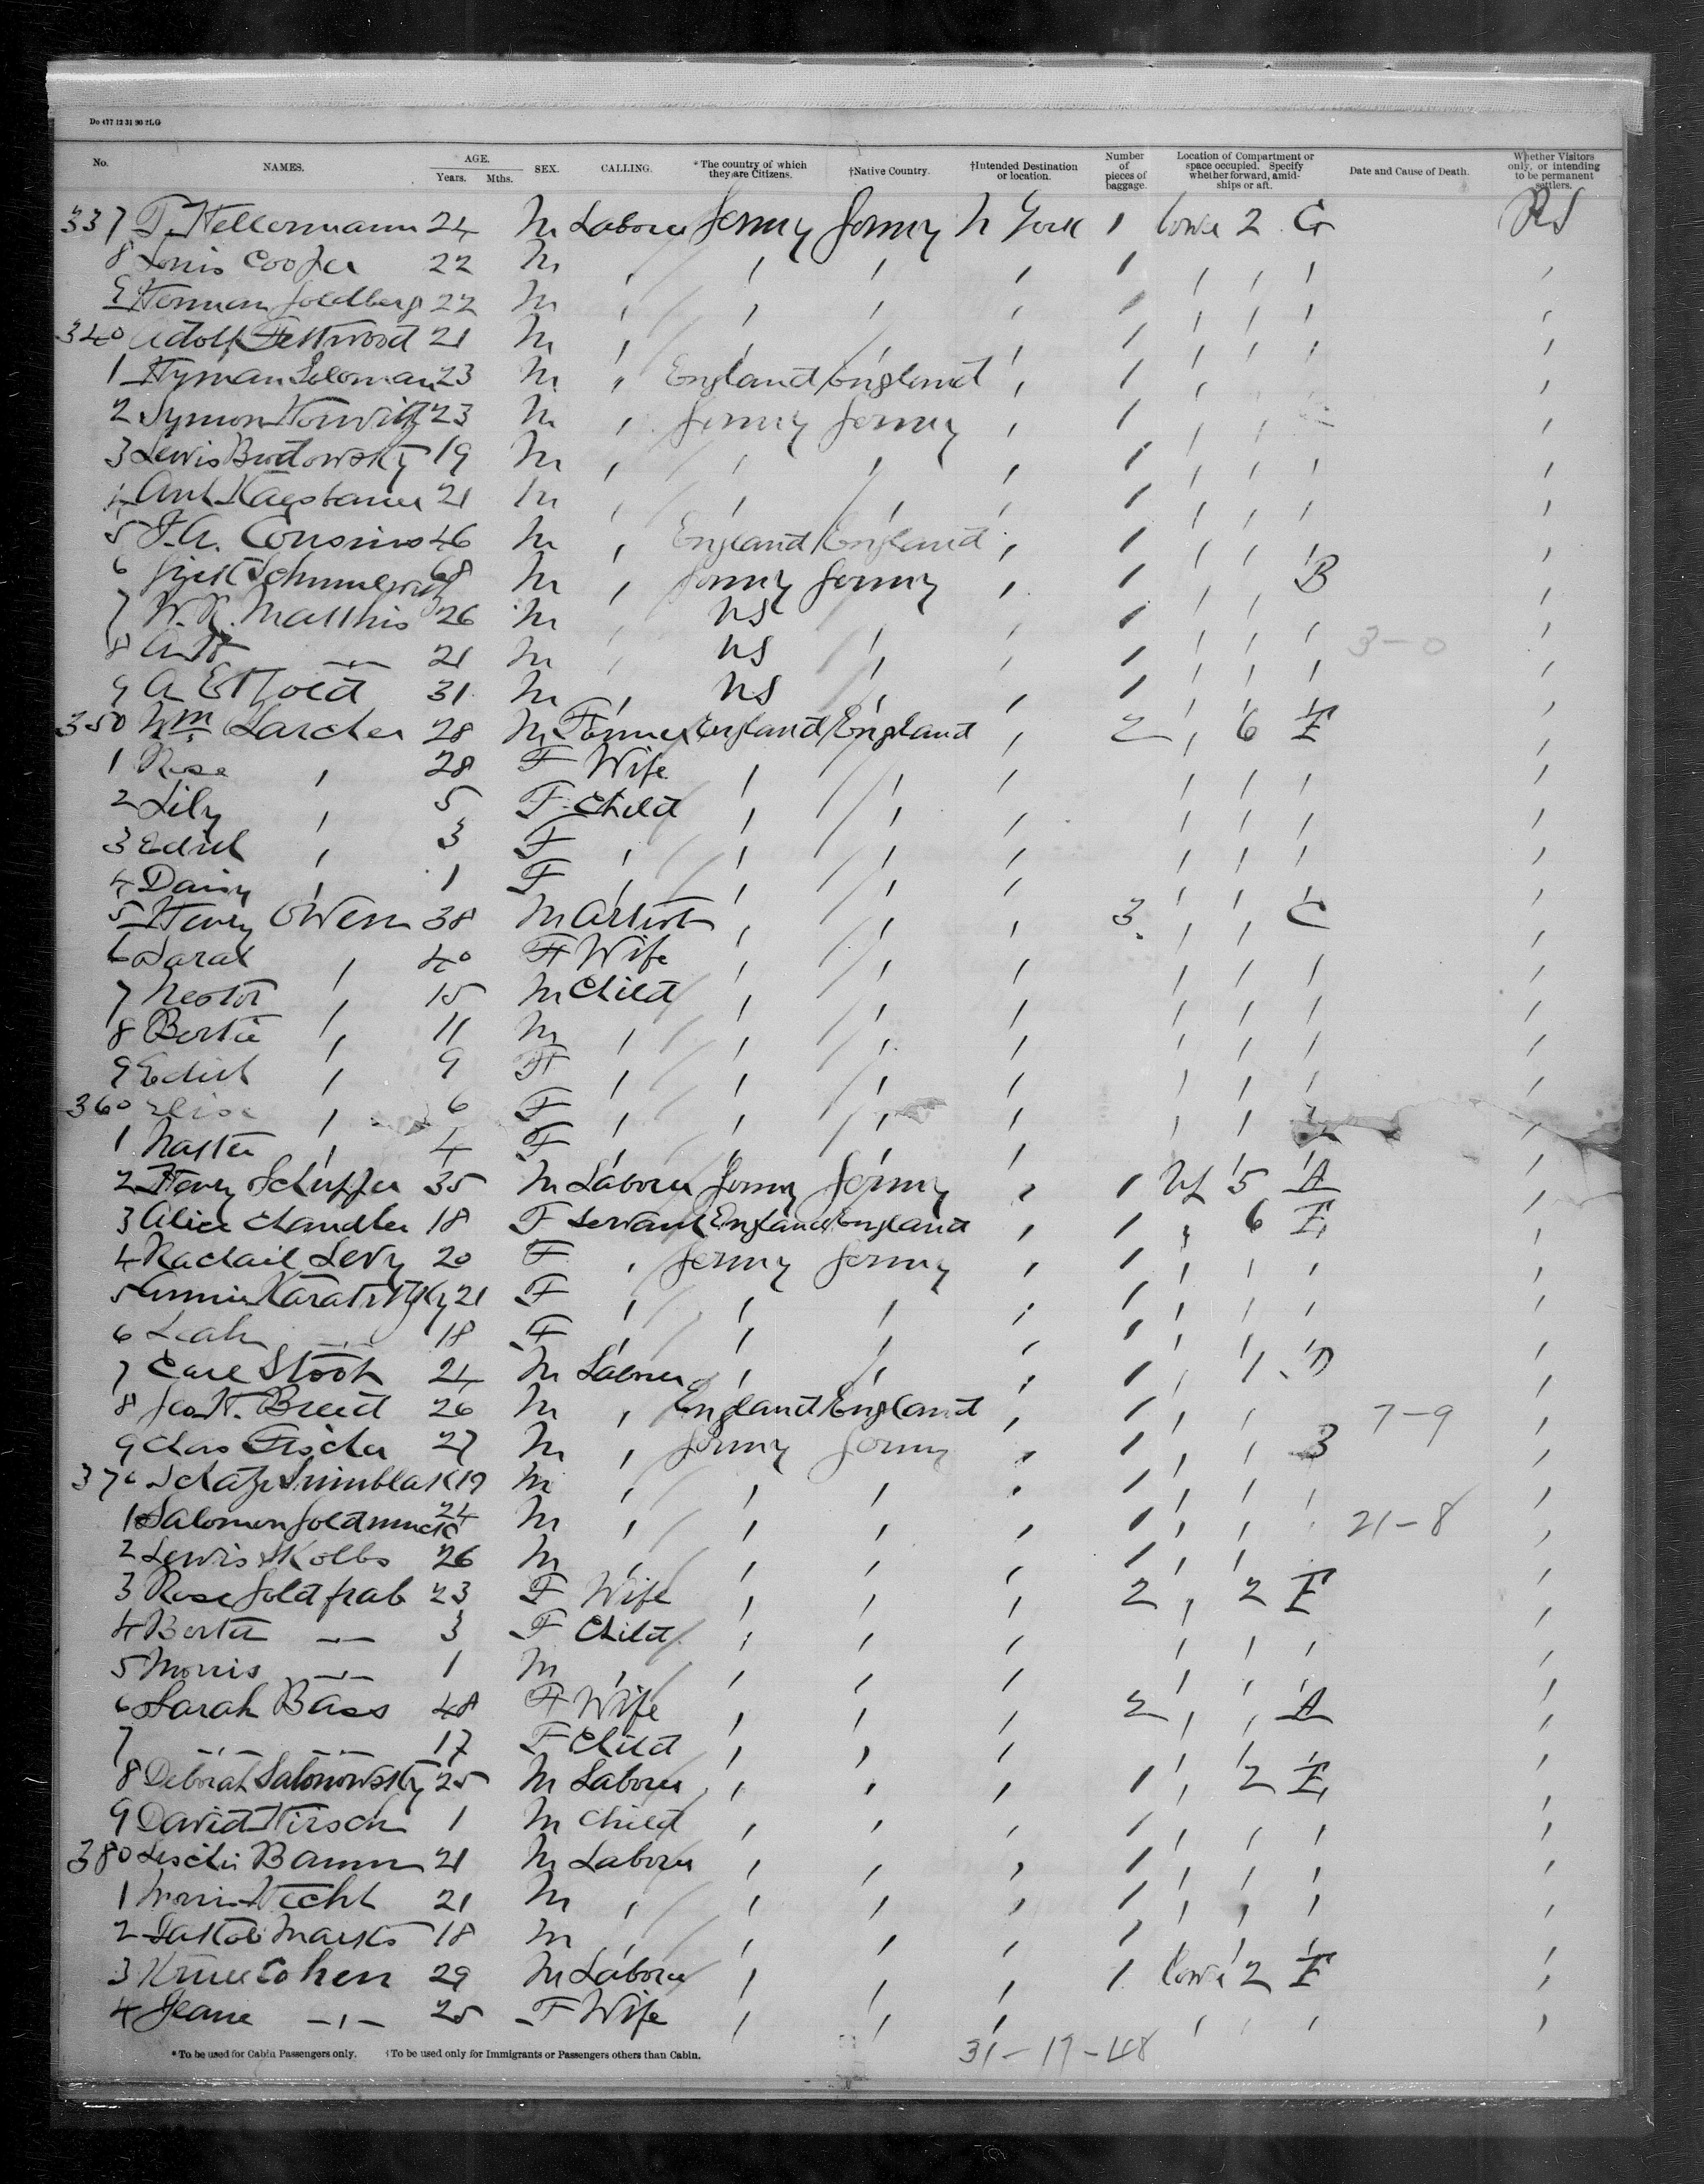 Do 477 12 31 96 2LG
No. NAMES. AGE. Years. Mths. SEX. CALLING. *The country of which they are Citizens. †Native Country. †Intended Destination or location. Number of pieces of baggage. Location of Compartment or space occupied. Specify whether forward, amidships or aft. Date and Cause of Death. Whether Visitors only, or intending to be permanent settlers.
337 T. Hellermann 24 M Labourer Germy Germy N York 1 lower 2 G
8 Louis Cooper 22 M , , , , 1 , , , ,
9 Herman Goldberg 22 M , , , , 1 , , , ,
340 Adolf 21 M , , , , 1 , , , ,
1 Hyman Soloman 23 M , England England , 1 , , , ,
2 Symon Horwitz 23 M , Germy Germy , 1 , , , ,
3 Lewis 19 M , , , , 1 , , , ,
4 21 M , , , , 1 , , , ,
5 Cousins 46 M , England England , 1 , , , ,
6 68 M , Germy Germy , 1 , , B ,
7 W. R. Matthis 26 M , US , , 1 , , , ,
8 —"— 21 M , US , , 1 , , , 3-0 ,
9 A 31 M , US , , 1 , , , ,
350 Wm Larcher 28 M Farmer England England , 2 , 6 F ,
1 Rose , 28 F Wife , , , , , , ,
2 Lily , 5 F Child , , , , , , ,
3 Edith , 3 F , , , , , , , ,
4 Daisy , 1 F , , , , , , , ,
5 Henry Owen 38 M Artist , , , 3 , , C ,
6 Sarah , 40 F Wife , , , , , , ,
7 Nestor , 15 M Child , , , , , , ,
8 Bertie , 11 M , , , , , , , ,
9 Edith , 9 F , , , , , , , ,
360 Elise , 6 F , , , , , , ,
1 , 4 F , , , , , , ,
2 Henry 35 M Labourer Germy Germy , 1 Up 5 A ,
3 Alice Chandler 18 F Servant England England , 1 , 6 F ,
4 Levy 20 F , Germy Germy , 1 , , , ,
5 Annie 21 F , , , , 1 , , , ,
6 Leah —"— 18 F , , , , 1 , , , ,
7 Carl 24 M Labourer , , , 1 , 1 D ,
8 Geo H. 26 M , England England , 1 , , 7-9 ,
9 Chas Fischer 27 M , Germy Germy , 1 , , 3 ,
370 19 M , , , , 1 , , , ,
1 Salomon 24 M , , , , 1 , , , 21-8 ,
2 Lewis Kolbs 26 M , , , , 1 , , ,
3 Rose 23 F Wife , , , 2 , 2 F ,
4 Berta —"— 3 F Child , , , , , , ,
5 Morris —"— 1 M , , , , , , , ,
6 Sarah Bass 48 F Wife , , , 2 , , A ,
7 —"— —"— 17 F Child , , , , , , ,
8 Deborah 25 M Labourer , , , 1 , 2 F ,
9 David Hirsch 1 M Child , , , 1 , , , ,
380 Baum 21 M Labourer , , , 1 , , , ,
1 Hecht 21 M , , , , 1 , , , ,
2 Marks 18 M , , , , 1 , , , ,
3 Cohen 29 M Labourer , , , 1 lower 2 F ,
4 Jeane —"— 25 F Wife , , , , , , ,
*To be used for Cabin Passengers only. †To be used only for Immigrants or Passengers others than Cabin.
31-17-48